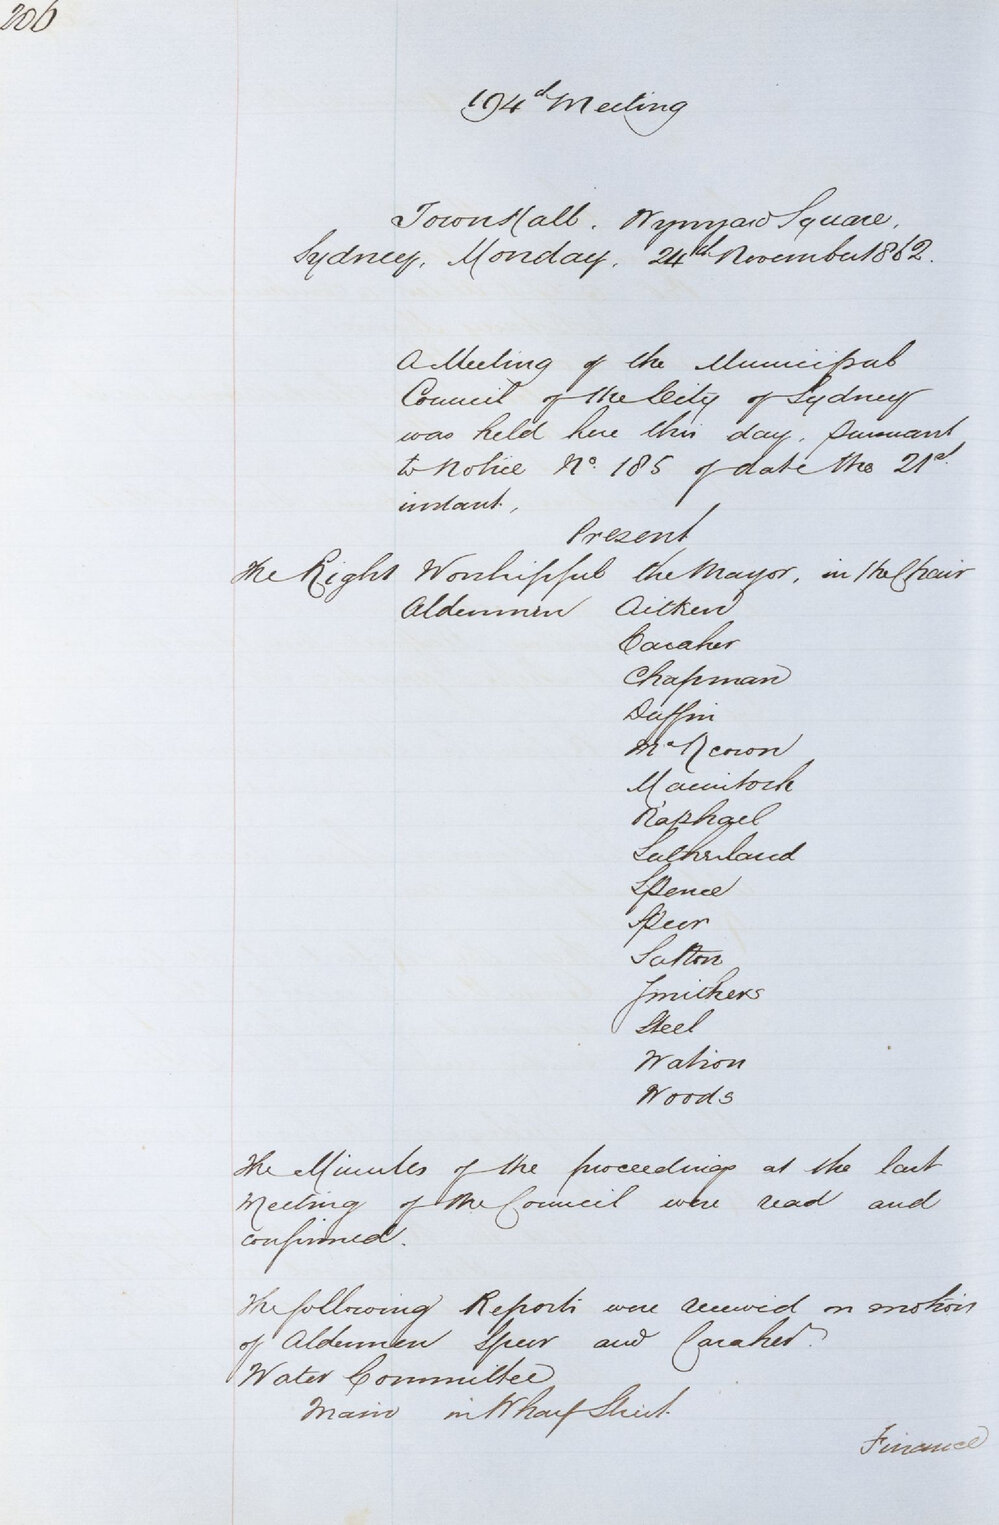 206
194th Meeting
Town Hall. Wynyard Square.
Sydney. Monday. 24th November 1862.
A Meeting of the Municipal
Council of the City of Sydney
was held here this day. pursuant
to Notice No. 185 of date the 21st
instant,
Present
The Right Worshipful the Mayor, in the Chair
Aldermen Aitken
Caraher
Chapman
Duffin
McKeown
Macintosh
Raphael
Sutherland
Spence
Speer
Sutton
Smithers
Steel
Watson
Woods
The Minutes of the proceedings at the last
Meeting of the Council were read and
confirmed.
The following Reports were received on motion
of Aldermen Speer and Caraher
Water Committee
Main in Wharf Street
Finance